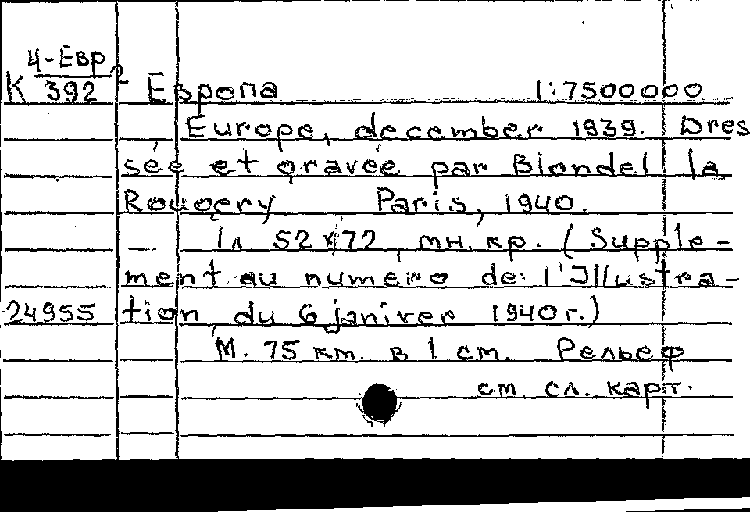 4-Евр 2
К 392 Европа 1:7500000
Europe, december 1939. Dres
sée et gravée par Blondel la
Rougery Paris, 1940.
— 1л 52x72, мн. кр. (Supple-
ment au numero de: l'Illustra-
24955 tion du 6 janiver 1940г.)
М. 75 км. в 1 см. Рельеф
см. сл. карт.